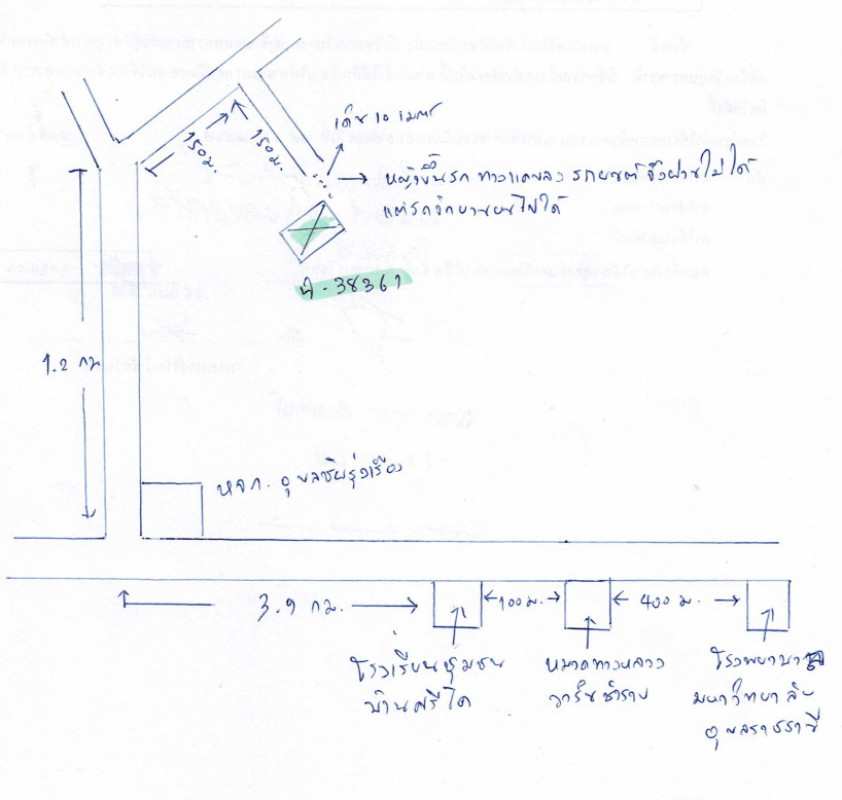 เดิน 10 เมตร
150 ม.
150 ม.
หญ้าขึ้นรก ทางแคบลง รถยนต์จึงผ่านไม่ได้
แต่รถจักยานยนไปได้
1.2 กม
หจก. อุบลชัยรุ่งเรือง
3.9 กม.
100 ม.
400 ม.
โรงเรียนชุมชน
บ้านศรีไค
หมวดทางหลวง
วารินชำราบ
โรงพยาบาล
มหาวิทยาลัย
อุบลราชธานี